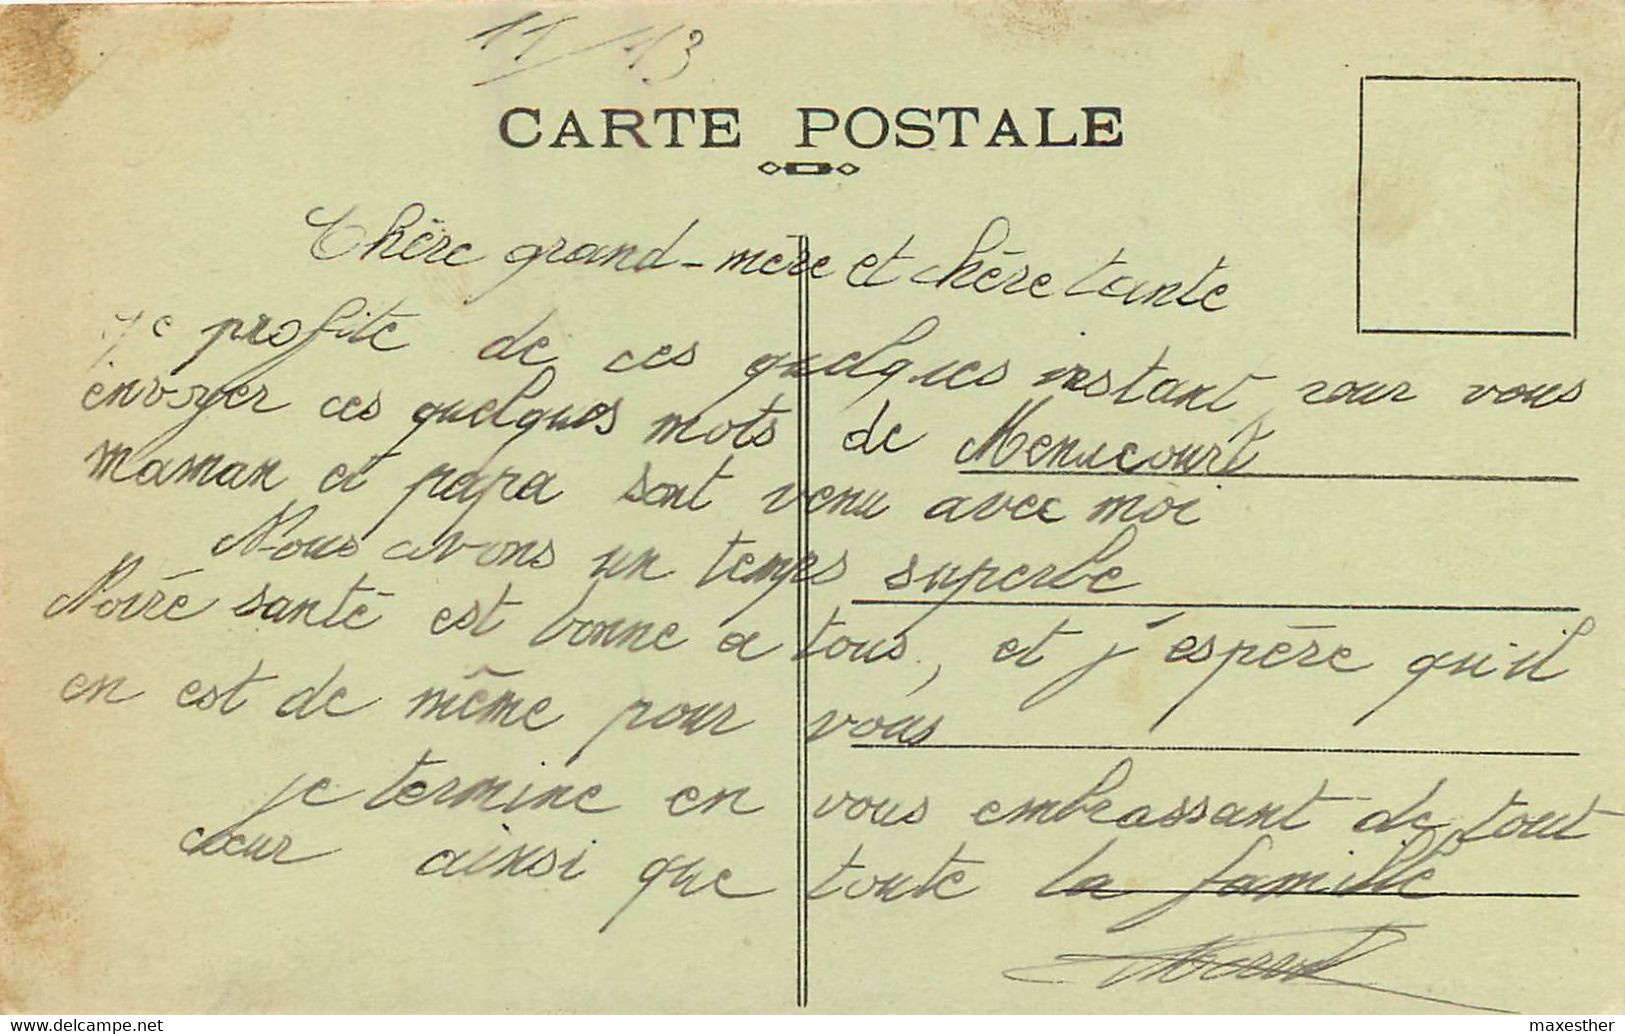 11/13
CARTE POSTALE
Chère grand-mère et chère tante
je profite de ces quelques instant pour vous
envoyer ces quelques mots de Menucourt
maman et papa sont venu avec moi
Nous avons un temps superbe
Notre santé est bonne a tous, et j'espère qu'il
en est de même pour vous
je termine en vous embrassant de tout
cœur ainsi que toute la famille
www.delcampe.net
maxesther